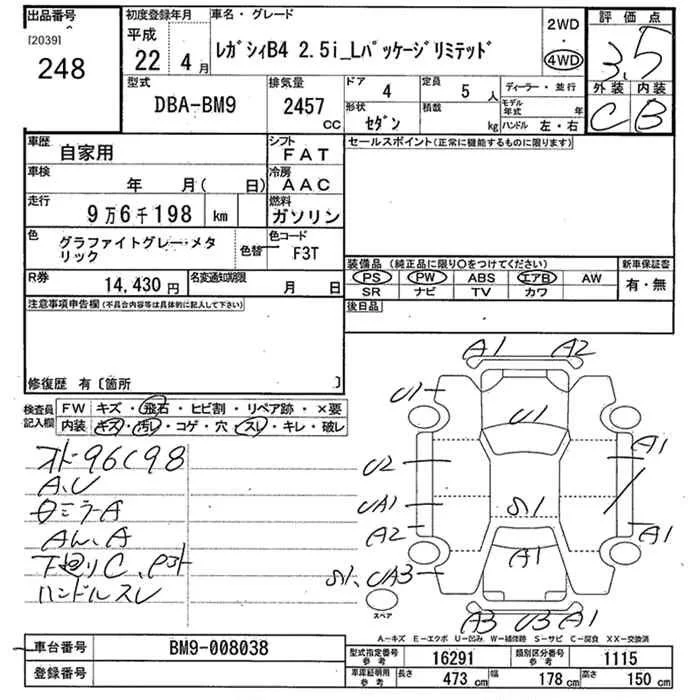 出品番号
120391
248
初度登録年月
平成
22 4月
車名・グレード
ﾚｶﾞｼｨB4 2.5i_Lﾊﾟｯｹｰｼﾞﾘﾐﾃｯﾄﾞ
2WD
・
4WD
評価点
3.5
外装 内装
C B
型式
DBA-BM9
排気量
2457
cc
ドア 4
定員 5 人
形状 ｾﾀﾞﾝ
積載 kg
ディーラー・並行
モデル年式 年
ハンドル 左・右
車歴
自家用
シフト
FAT
セールスポイント(正常に機能するものに限ります)
車検
年 月( 日)
冷房
AAC
走行
9万6千198 km
燃料
ガソリン
色
グラファイトグレー・メタ
リック
色替
色コード
F3T
R券
14,430円
名変通知期限
月 日
装備品(純正品に限り○をつけてください)
新車保証書
PS PW ABS エアB AW
SR ナビ TV カワ
有・無
注意事項申告欄(不具合内容等は具体的に記入して下さい)
後日品
修復歴 有〔箇所 〕
検査員
記入欄
FW キズ・飛石・ヒビ割・リペア跡・×要
内装 キズ・汚レ・コゲ・穴・スレ・キレ・破レ
96198
A、U
ミラーA
A
下廻りC
ハンドルスレ
A1 A2
U1
U1
U2
A1
UA1
S1
A2
A1
A1
S1、UA3
スペア
A3 U3 A1
A-キズ E-エクボ U-凹み W-補修跡 S-サビ C-腐食 XX-交換済
車台番号
BM9-008038
登録番号
型式指定番号
参考
16291
類別区分番号
参考
1115
車庫証明用
参考
長さ 473 cm
幅 178 cm
高さ 150 cm